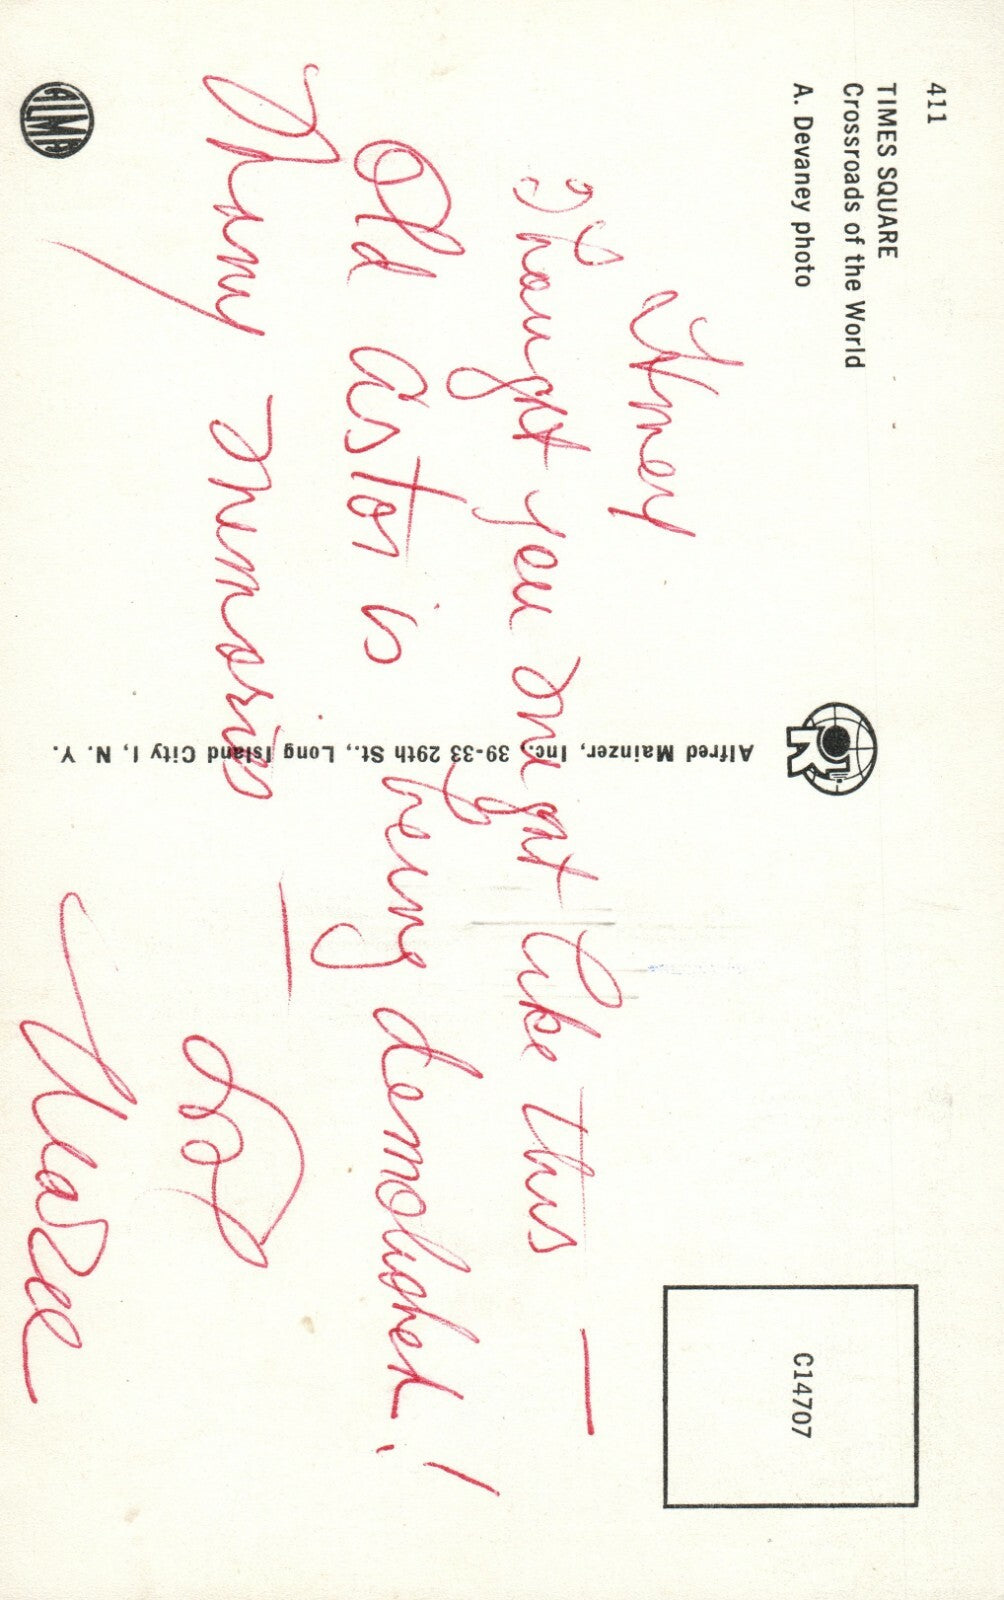 411
TIMES SQUARE
Crossroads of the World
A. Devaney photo
C14707
Thought you might like this —
Old Astor is being demolished!
Many memories —
Love
ALMA
Alfred Mainzer, Inc. 39-33 29th St., Long Island City 1, N. Y.